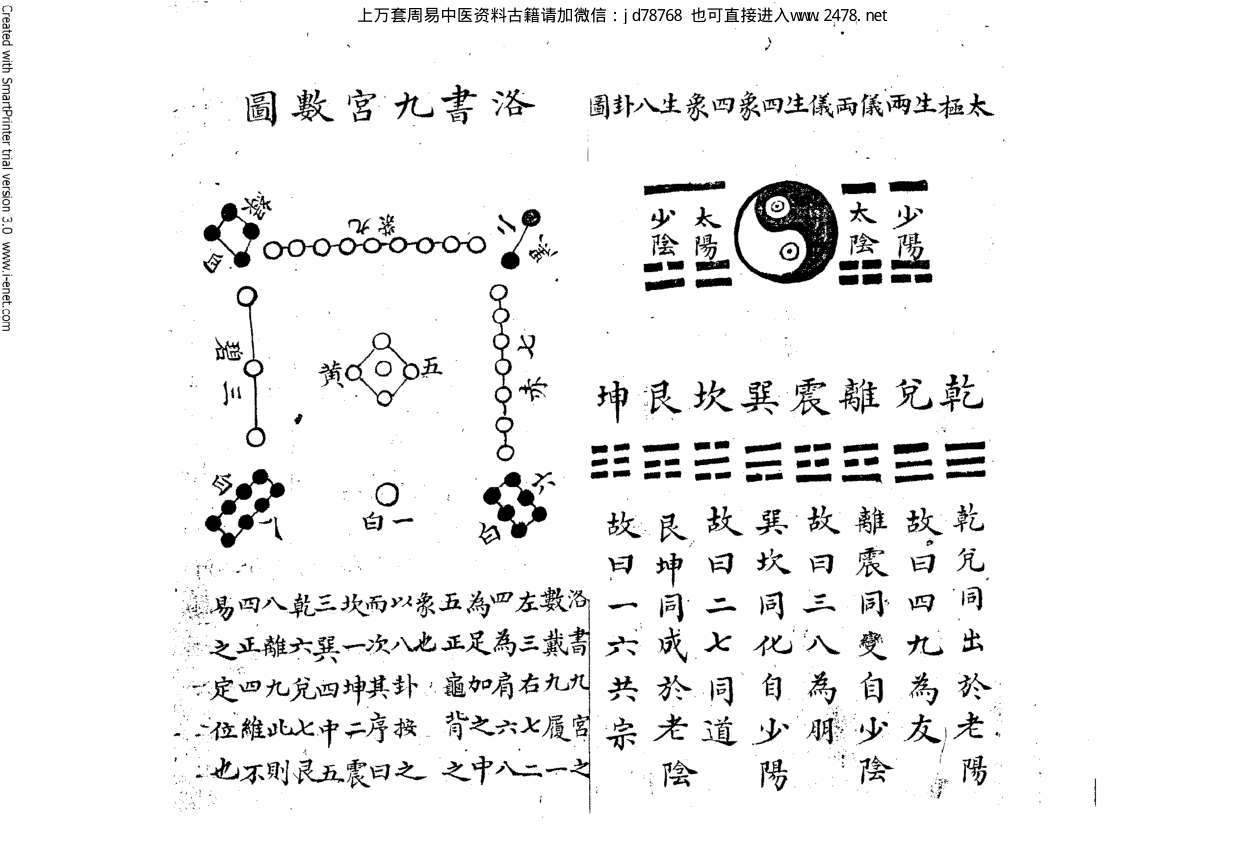 上万套周易中医资料古籍请加微信：jd78768 也可直接进入www.2478.net
Created with SmartPrinter trial version 3.0 www.i-enet.com
太極生兩儀両儀生四象四象生八卦圖
少陽
太陰
太陽
少陰
乾兌離震巽坎艮坤
乾兌同出於老陽
故曰四九為友
離震同變自少陰
故曰三八為朋
巽坎同化自少陽
故曰二七同道
艮坤同成於老陰
故曰一六共宗
洛書九宮數圖
四綠
九紫
二黑
三碧
五黄
七赤
八白
一白
六白
洛書九宮之
數戴九履一
左三右七二
四為肩六八
為足加之中
五正龜背之
象也
以八卦按之
而次其序曰
坎一坤二震
三巽四中五
乾六兌七艮
八離九此則
四正四維不
易之定位也